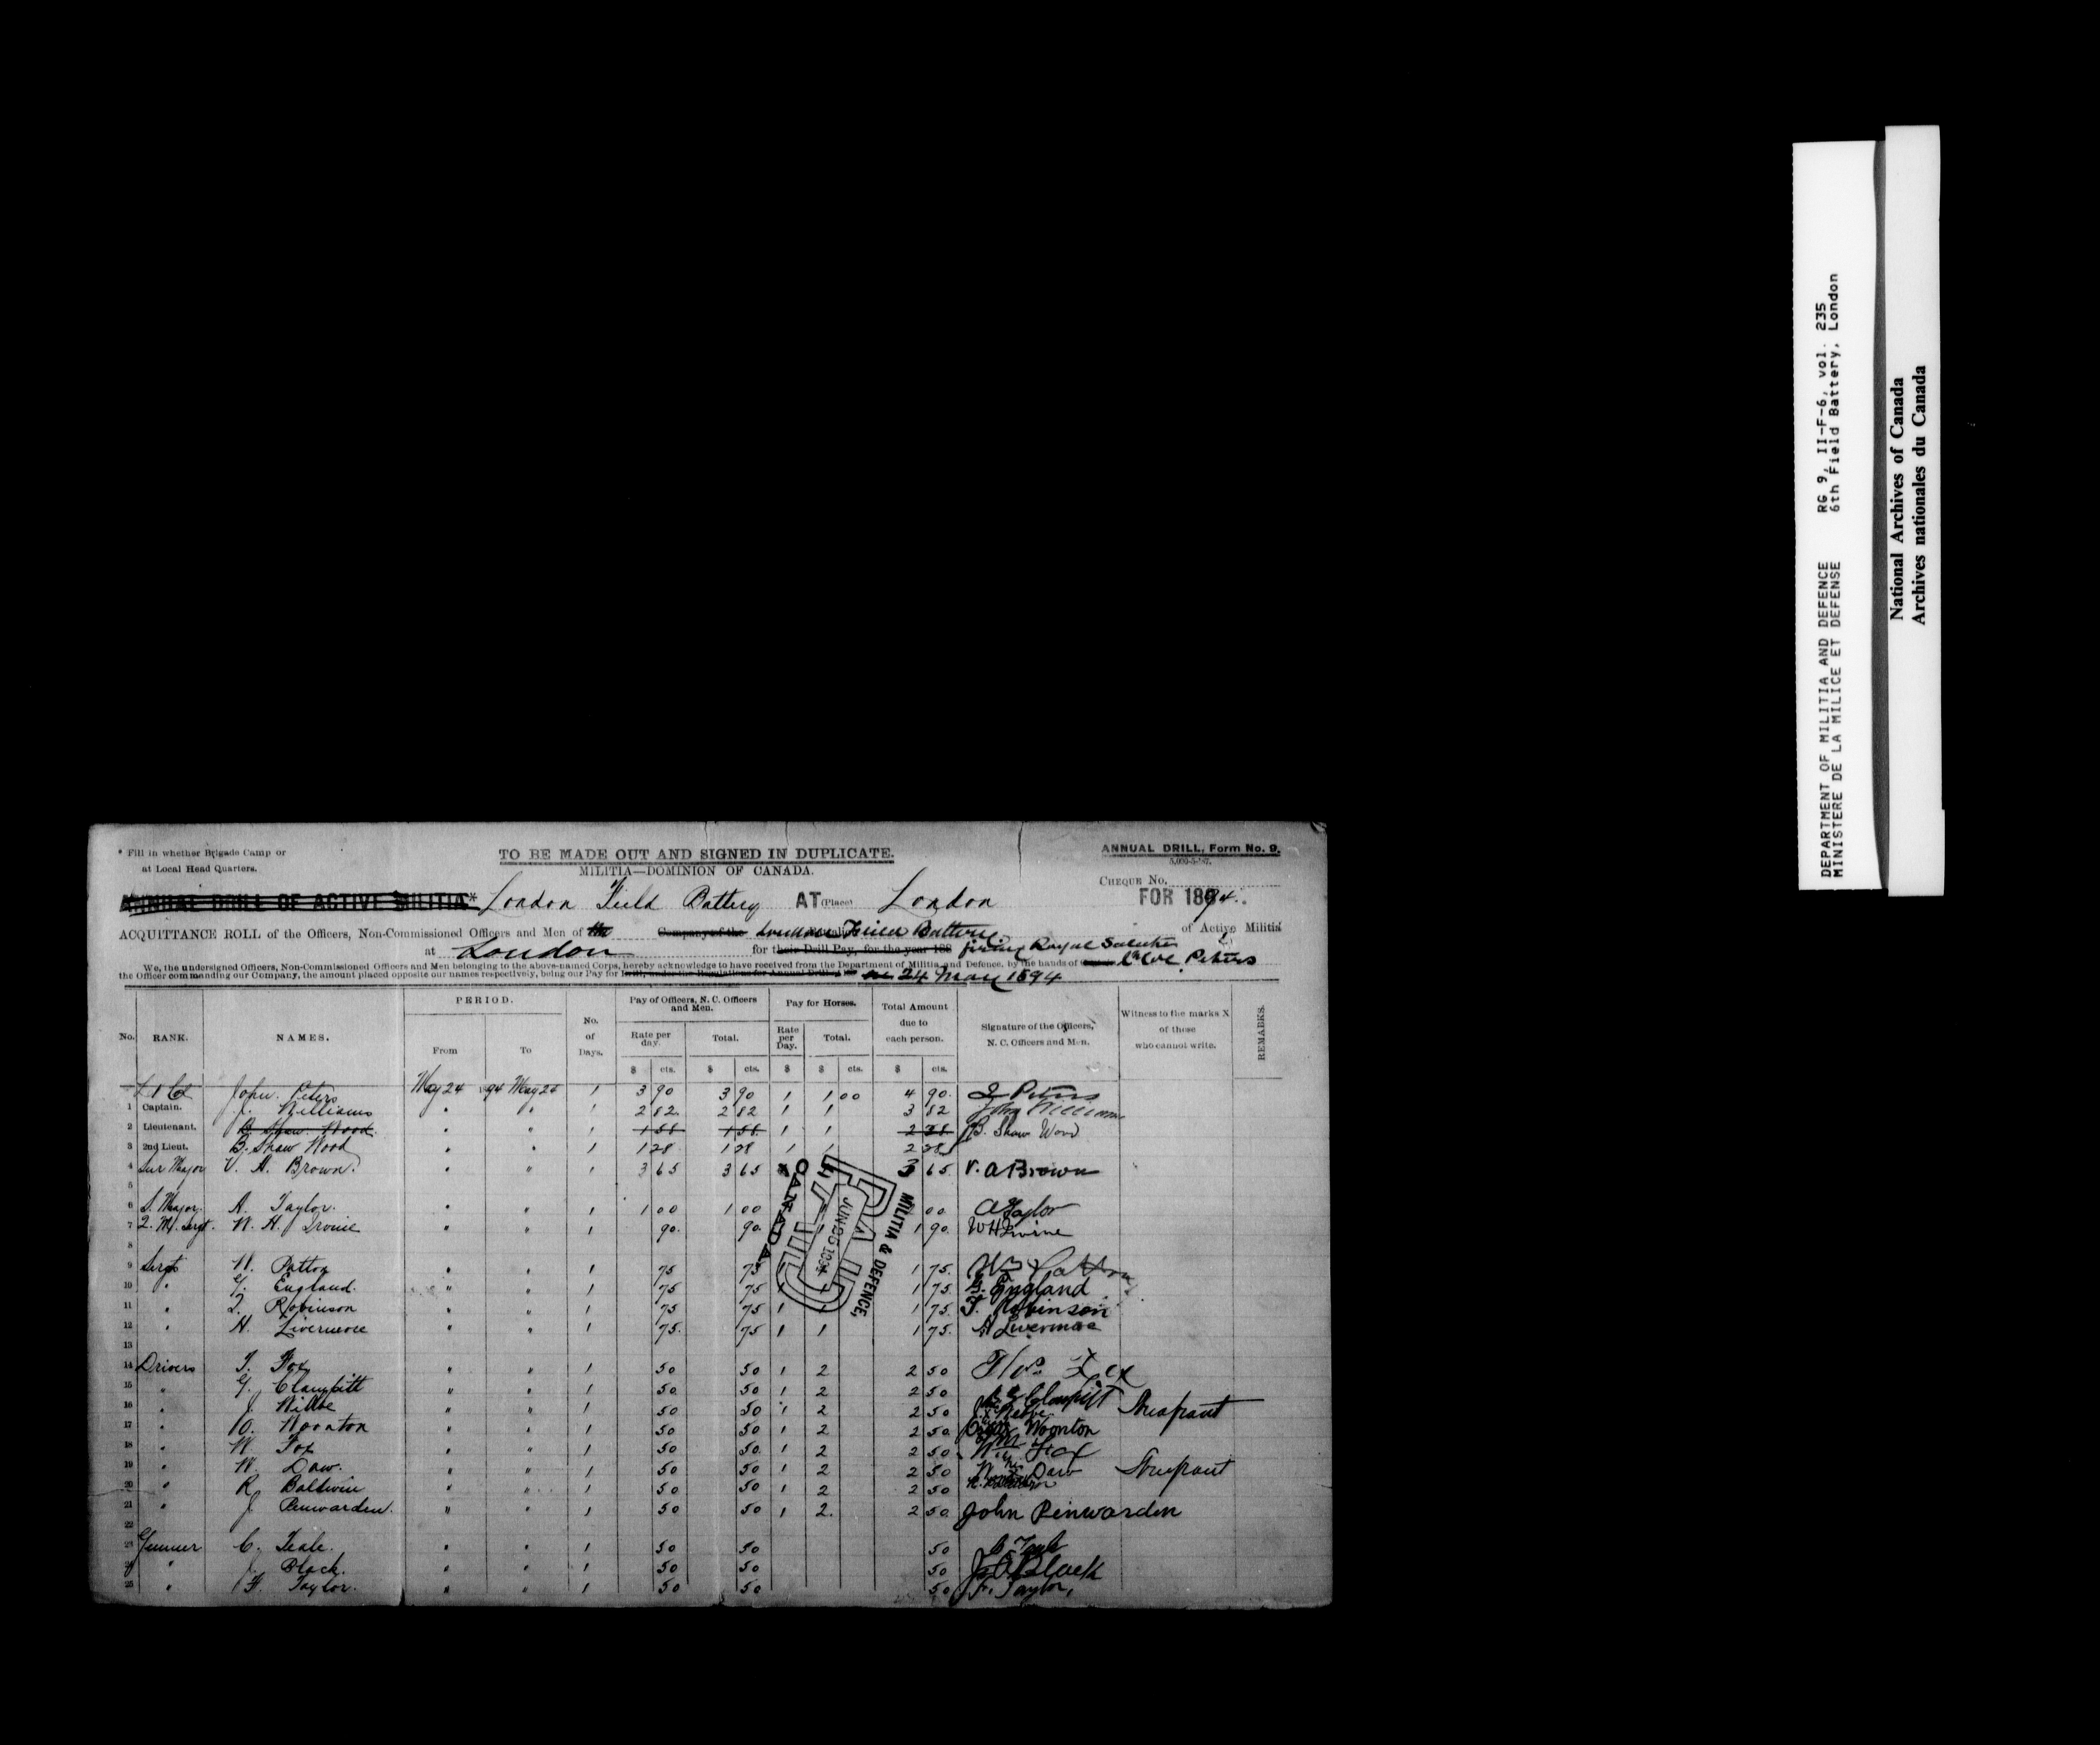 * Fill in whether Brigade Camp or
at Local Head Quarters.
TO BE MADE OUT AND SIGNED IN DUPLICATE.
MILITIA—DOMINION OF CANADA.
ANNUAL DRILL, Form No. 9.
CHEQUE No.
ANNUAL DRILL OF ACTIVE MILITIA* London Field Battery AT (Place) London FOR 1894.
ACQUITTANCE ROLL of the Officers, Non-Commissioned Officers and Men of the Company of the London Field Battery of Active Militia
at London for their Drill Pay, for the year 188 firing Royal Salute
We, the undersigned Officers, Non-Commissioned Officers and Men belonging to the above-named Corps, hereby acknowledge to have received from the Department of Militia and Defence, by the hands of Lt Col Peters
the Officer commanding our Company, the amount placed opposite our names respectively, being our Pay for Drill, under the Regulations for Annual Drill on 24 May 1894
No. RANK. NAMES. PERIOD. From To No. of Days. Pay of Officers, N. C. Officers and Men. Rate per day. Total. Pay for Horses. Rate per Day. Total. Total Amount due to each person. Signature of the Officers, N. C. Officers and Men. Witness to the marks X of those who cannot write. REMARKS.
$ cts. $ cts. $ $ cts. $ cts.
Lt Col John Peters May 24 94 May 24 1 3 90 3 90 1 1 00 4 90 J Peters
1 Captain. J. Williams " " 1 2 82 2 82 1 1 3 82 John Williams
2 Lieutenant. B. Shaw Wood " " 1 1 1 B. Shaw Wood
3 2nd Lieut. B. Shaw Wood " " 1 1 28 1 28 1 1 2 28
4 Sur Major V. A. Brown. " " 1 3 65 3 65 3 65 V. A Brown
5
6 S. Major. A. Taylor. " " 1 1 00 1 00 00 A Taylor
7 Q. M. Sergt. W. H. Irvine " " 1 90 90 1 1 90 W H Irvine
8
9 Sergts W. Patton " " 1 75 75 1 75 Wm Patton
10 " G. England. " " 1 75 75 1 75 G. England
11 " T. Robinson " " 1 75 75 1 75 T. Robinson
12 " H. Livermore " " 1 75 75 1 1 1 75 H Livermore
13
14 Drivers T. Fox " " 1 50 50 1 2 2 50 Thos Fox
15 " G. Clampitt " " 1 50 50 1 2 2 50 Clampitt
16 " J. " " 1 50 50 1 2 2 50
17 " O. Woonton " " 1 50 50 1 2 2 50 Woonton
18 " W. Fox " " 1 50 50 1 2 2 50 Wm Fox
19 " W. Daw. " " 1 50 50 1 2 2 50 Daw
20 " R Baldwin " " 1 50 50 1 2 2 50
21 " J Penwarden. " " 1 50 50 1 2 2 50 John Penwarden
22
23 Gunner C. Teale. " " 1 50 50 50 C Teale
24 " J. Black. " " 1 50 50 50 J. Black
25 " F. Taylor. " " 1 50 50 50 F. Taylor,
MILITIA & DEFENCE,
PAID
JUN 25 1894
CANADA
DEPARTMENT OF MILITIA AND DEFENCE RG 9, II-F-6, vol. 235
MINISTERE DE LA MILICE ET DEFENSE 6th Field Battery, London
National Archives of Canada
Archives nationales du Canada